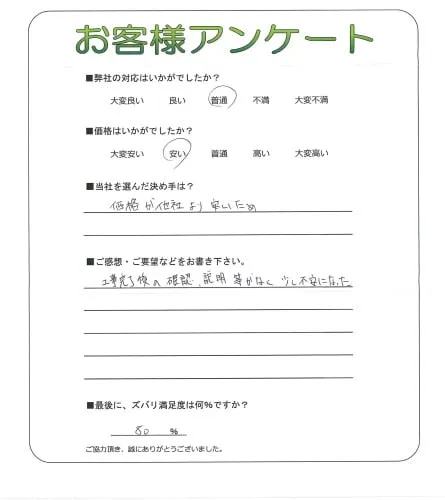 お客様アンケート
■弊社の対応はいかがでしたか?
大変良い 良い 普通 不満 大変不満
■価格はいかがでしたか?
大変安い 安い 普通 高い 大変高い
■当社を選んだ決め手は?
価格が他社より安いため
■ご感想・ご要望などをお書き下さい。
工事完了後の確認、説明等がなく少し不安になった
■最後に、ズバリ満足度は何%ですか?
80 %
ご協力頂き、誠にありがとうございました。